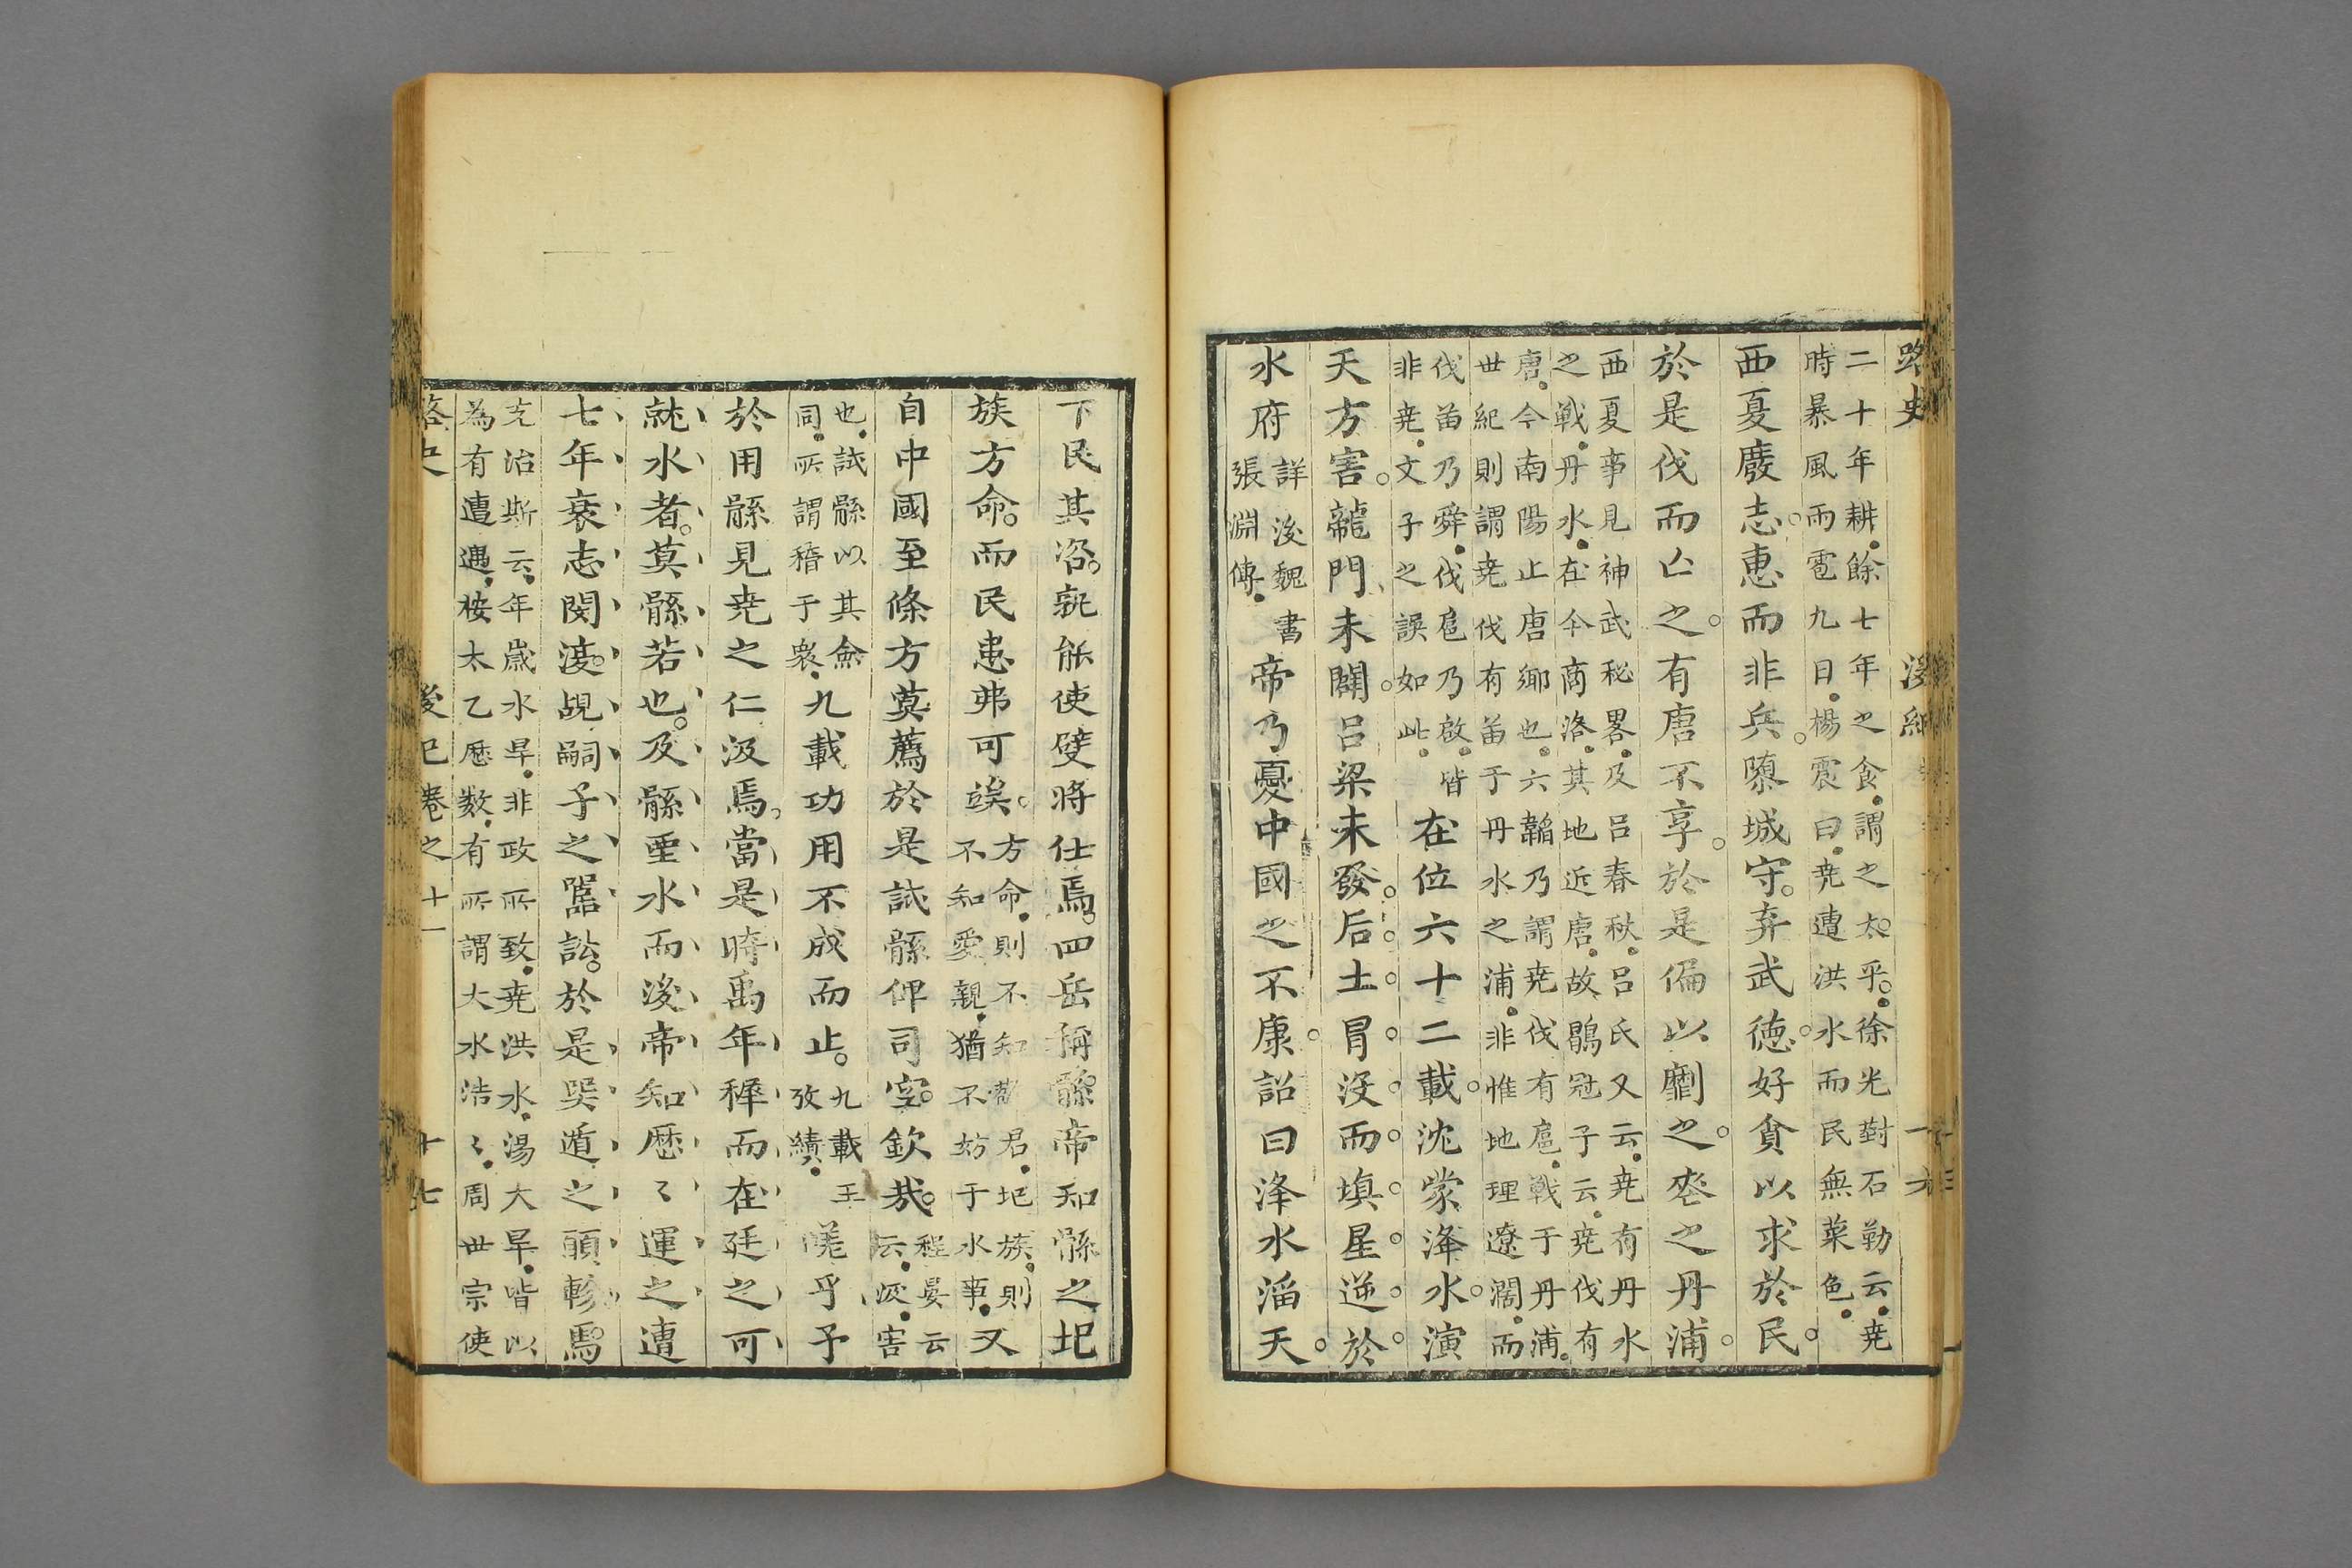 路史 後紀 十六
二十年耕餘七年之食謂之太平徐光對石勒云堯
時暴風雨雹九日楊震曰堯遭洪水而民無菜色
西夏廢志惠而非兵隳城守弃武徳好貪以求於民
於是伐而亡之有唐不享於是偏以劘之丞之丹浦
西夏事見神武秘畧及呂春秋呂氏又云堯有丹水
之戰丹水在今商洛其地近唐故鶡冠子云堯伐有
唐今南陽止唐鄉也六韜乃謂堯伐有扈戰于丹浦
世紀則謂堯伐有苗于丹水之浦非惟地理遼濶而
伐苗乃舜伐扈乃啟皆
非堯文子之誤如此
在位六十二載沈蒙洚水演
天方害龍門未闢呂梁未發后土冒没而填星逆於
水府
詳後魏書
張淵傳
帝乃憂中國之不康詔曰洚水滔天
下民其咨孰能使嬖將仕焉四岳稱鯀帝知鯀之圮
族方命而民患弗可竢
方命則不知畏君圮族則
不知愛親猶不妨于水事
又
自中國至條方莫薦於是試鯀俾司空欽㢤
程晏云
云汲害
也試鯀以其僉
同所謂稽于衆
九載功用不成而止
九載三
攷績
嗟乎予
於用鯀見堯之仁汲焉當是時禹年穉而在廷之可
就水者莫鯀若也及鯀堙水而後帝知歷〻運之遭
七年衰志閔渡覘嗣子之嚚訟於是巽遁之頤軫焉
充治斯云年歲水旱非政所致堯洪水湯大旱皆以
為有遭遇桉太乙歷數有所謂大水浩〻周世宗使
路史 後紀卷之十一 十七